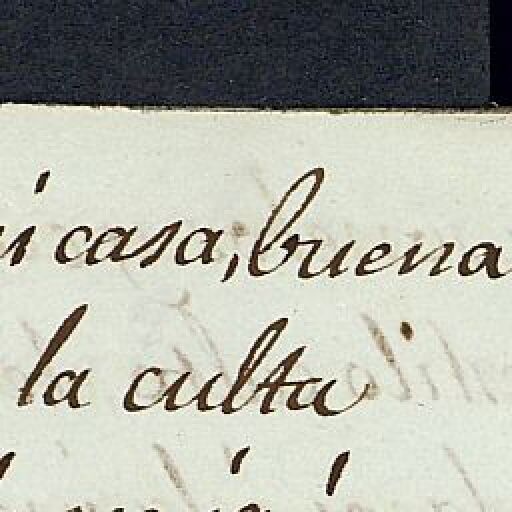 casa, buena
la culta